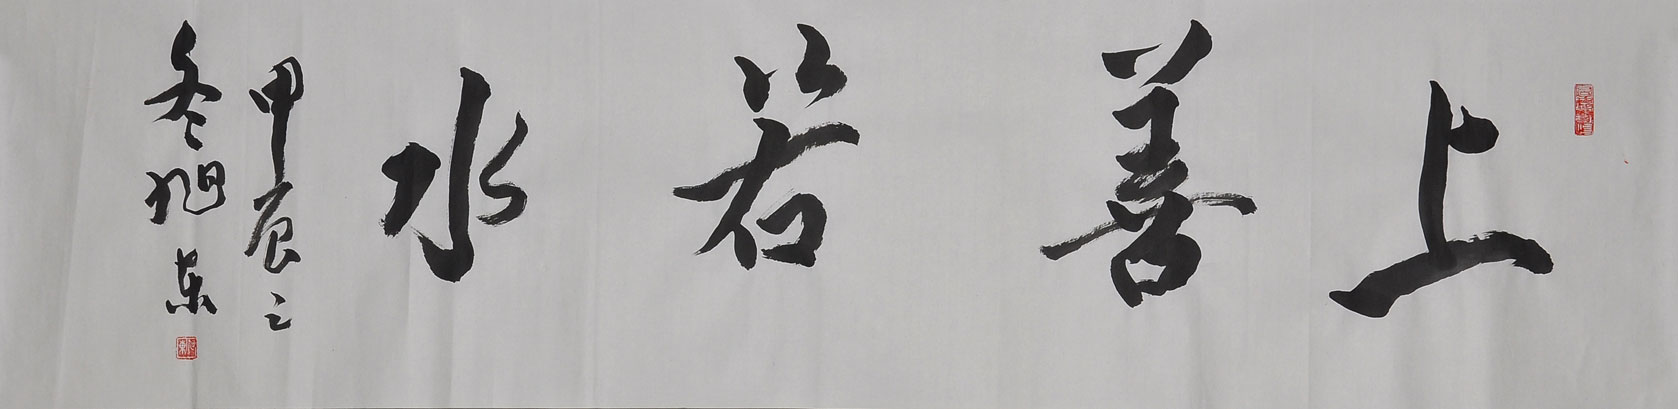 上善若水
甲辰之
冬旭东